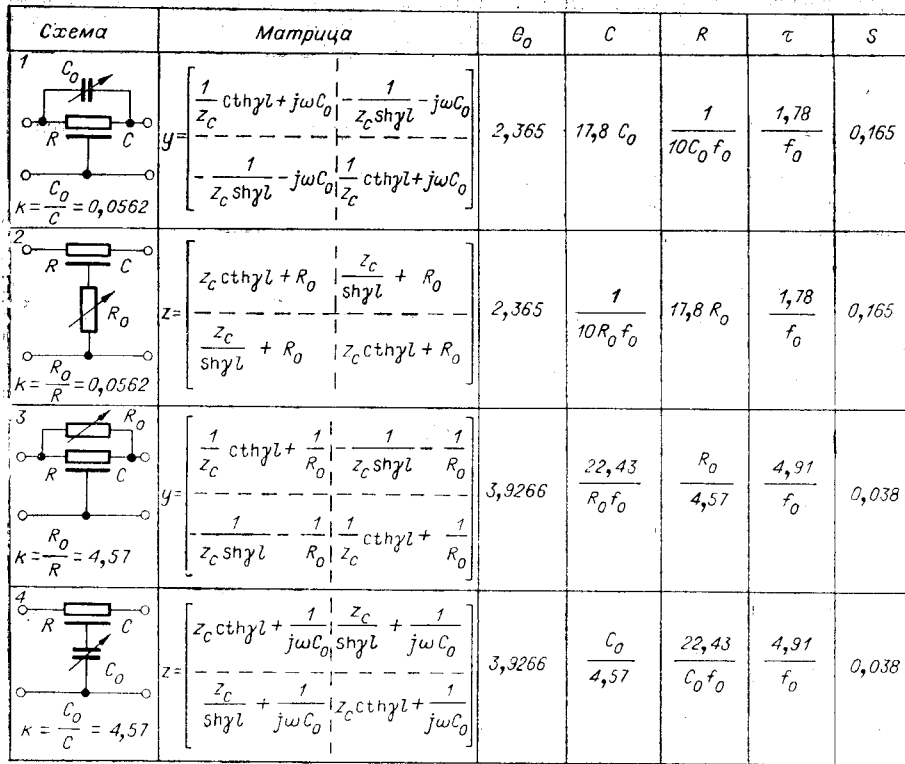 Схема Матрица θ₀ C R τ S
1
C₀
R C
κ = C₀/C = 0,0562
y = [ 1/z_c cthγl + jωC₀ | - 1/(z_c shγl) - jωC₀
- 1/(z_c shγl) - jωC₀ | 1/z_c cthγl + jωC₀ ]
2,365 17,8 C₀ 1/(10C₀f₀) 1,78/f₀ 0,165
2
R C
R₀
κ = R₀/R = 0,0562
z = [ z_c cthγl + R₀ | z_c/shγl + R₀
z_c/shγl + R₀ | z_c cthγl + R₀ ]
2,365 1/(10R₀f₀) 17,8 R₀ 1,78/f₀ 0,165
3
R₀
R C
κ = R₀/R = 4,57
y = [ 1/z_c cthγl + 1/R₀ | - 1/(z_c shγl) - 1/R₀
- 1/(z_c shγl) - 1/R₀ | 1/z_c cthγl + 1/R₀ ]
3,9266 22,43/(R₀f₀) R₀/4,57 4,91/f₀ 0,038
4
R C
C₀
κ = C₀/C = 4,57
z = [ z_c cthγl + 1/(jωC₀) | z_c/shγl + 1/(jωC₀)
z_c/shγl + 1/(jωC₀) | z_c cthγl + 1/(jωC₀) ]
3,9266 C₀/4,57 22,43/(C₀f₀) 4,91/f₀ 0,038